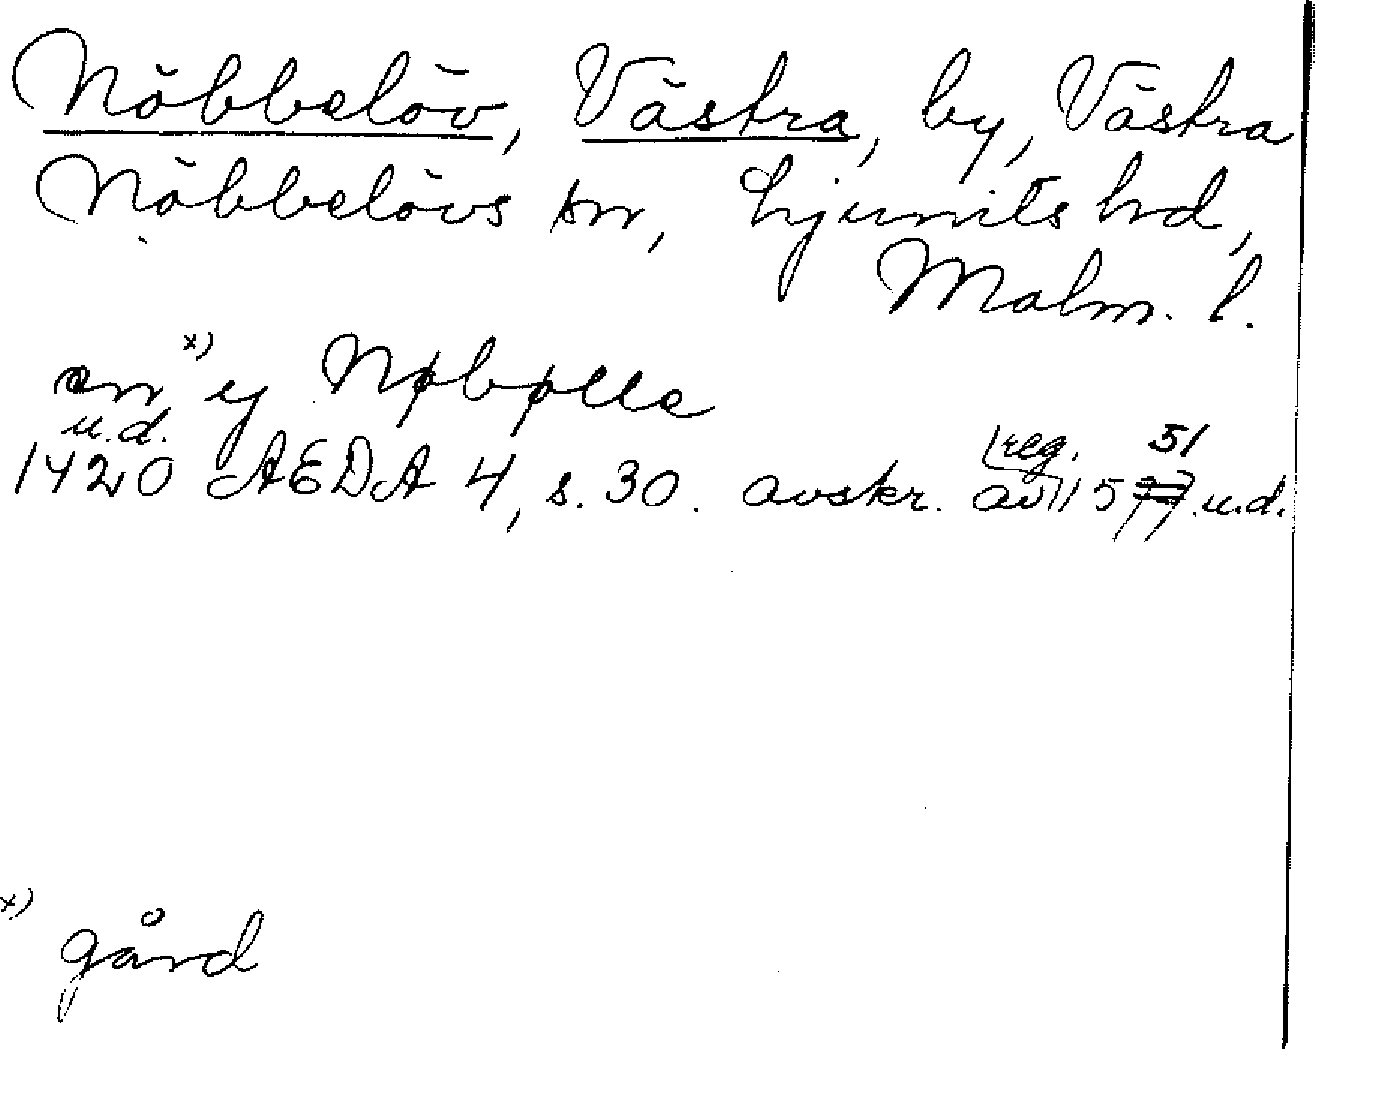 Nöbbelöv, Västra, by, Västra
Nöbbelövs sn, Ljunits hd,
Malm. l.
en x) y Nøbølle
u.d.
1420 AEDA 4, s. 30. avskr. av reg. 1551 u.d.
x) gård